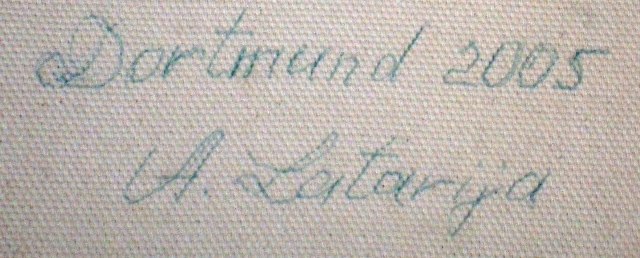 Dortmund 2005
A. Latarija